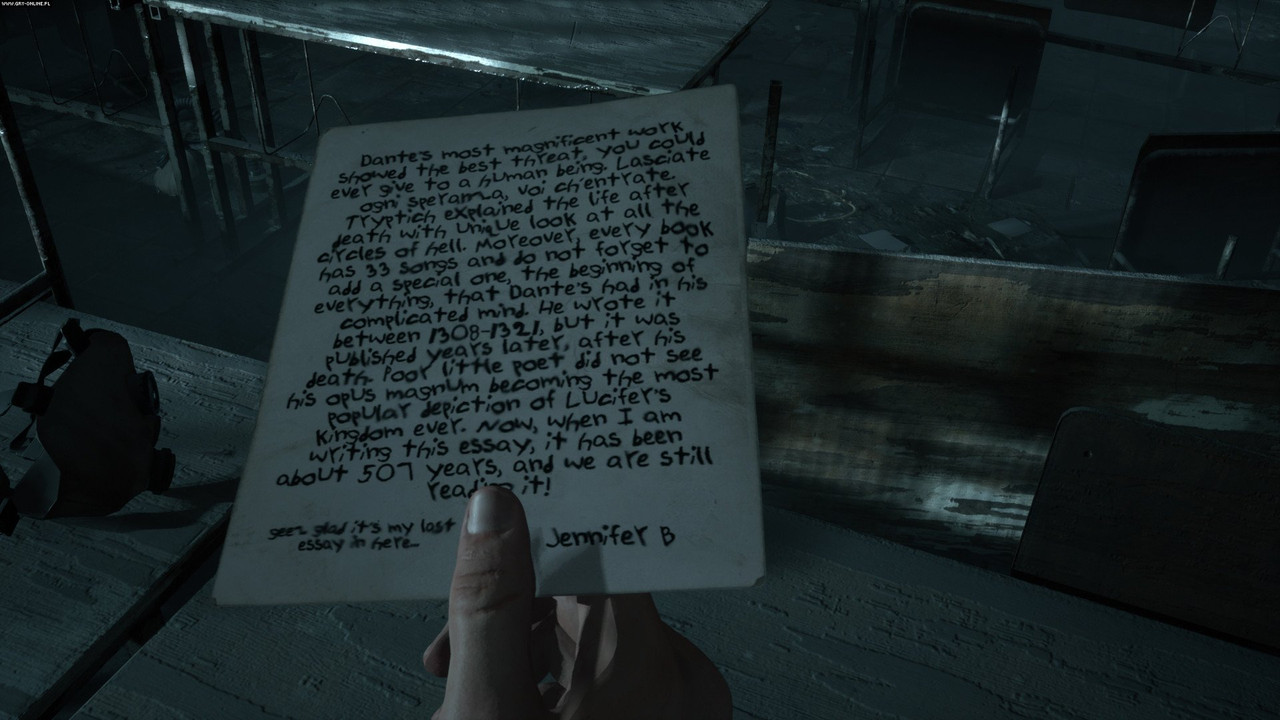 WWW.GRY-ONLINE.PL
Dante's most magnificent work
showed the best threat, you could
ever give to a human being. Lasciate
ogni speranza, voi ch'entrate.
Tryptich explained the life after
death with unique look at all the
circles of hell. Moreover, every book
has 33 songs and do not forget to
add a special one, the beginning of
everything, that Dante's had in his
complicated mind. He wrote it
between 1308-1321, but it was
published years later, after his
death. Poor little poet did not see
his opus magnum becoming the most
popular depiction of Lucifer's
kingdom ever. Now, when I am
writing this essay, it has been
about 507 years, and we are still
reading it!
geez glad it's my last
essay in here...
Jennifer B